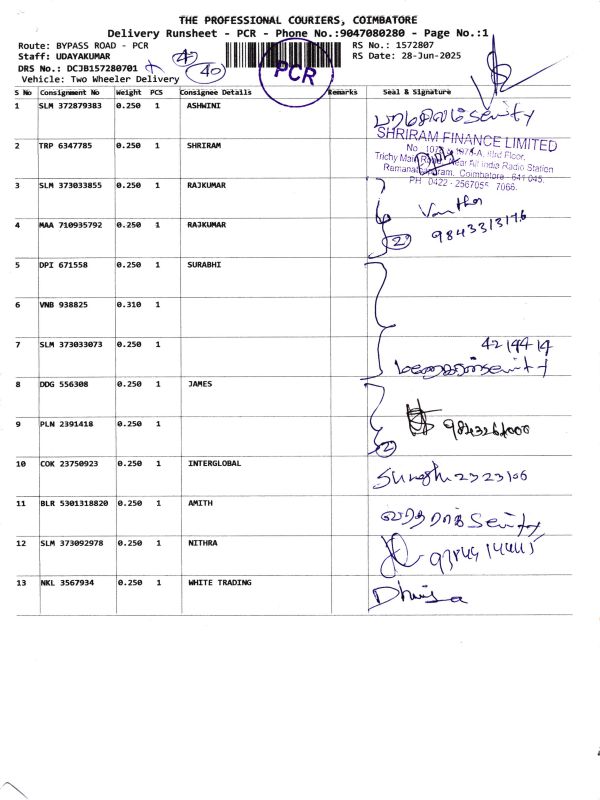 THE PROFESSIONAL COURIERS, COIMBATORE
Delivery Runsheet - PCR - Phone No.:9047080280 - Page No.:1
Route: BYPASS ROAD - PCR
RS No.: 1572807
Staff: UDAYAKUMAR
RS Date: 28-Jun-2025
DRS No.: DCJB157280701
40
PCR
Vehicle: Two Wheeler Delivery
S No Consignment No Weight PCS Consignee Details Remarks Seal & Signature
1 SLM 372879383 0.250 1 ASHWINI
2 TRP 6347785 0.250 1 SHRIRAM
SHRIRAM FINANCE LIMITED
Trichy Main Near All India Radio Station
Coimbatore - 641 045.
PH 0422 - 2567055 7066.
3 SLM 373033855 0.250 1 RAJKUMAR
4 MAA 710935792 0.250 1 RAJKUMAR
2 9843313176
5 DPI 671558 0.250 1 SURABHI
6 VNB 938825 0.310 1
7 SLM 373033073 0.250 1
4214414
8 DDG 556308 0.250 1 JAMES
9 PLN 2391418 0.250 1
2
10 COK 23750923 0.250 1 INTERGLOBAL
2323106
11 BLR 5301318820 0.250 1 AMITH
12 SLM 373092978 0.250 1 NITHRA
13 NKL 3567934 0.250 1 WHITE TRADING